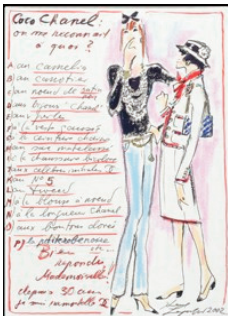 Coco Chanel:
on me reconnait
à quoi?
A au camelia
B au canotier
au noeud de satin
aux bijoux "Chanel"
aux perles
à la veste
la ceinture
au sac matelassé
la chaussure bicolore
aux célèbres initiales
au N° 5
au tweed
à la blouse à noeud
à la longueur Chanel
aux boutons dorés
la petite robe noire
Bien
répondu
Mademoiselle!
depuis 30 ans
je suis immortelle
2002